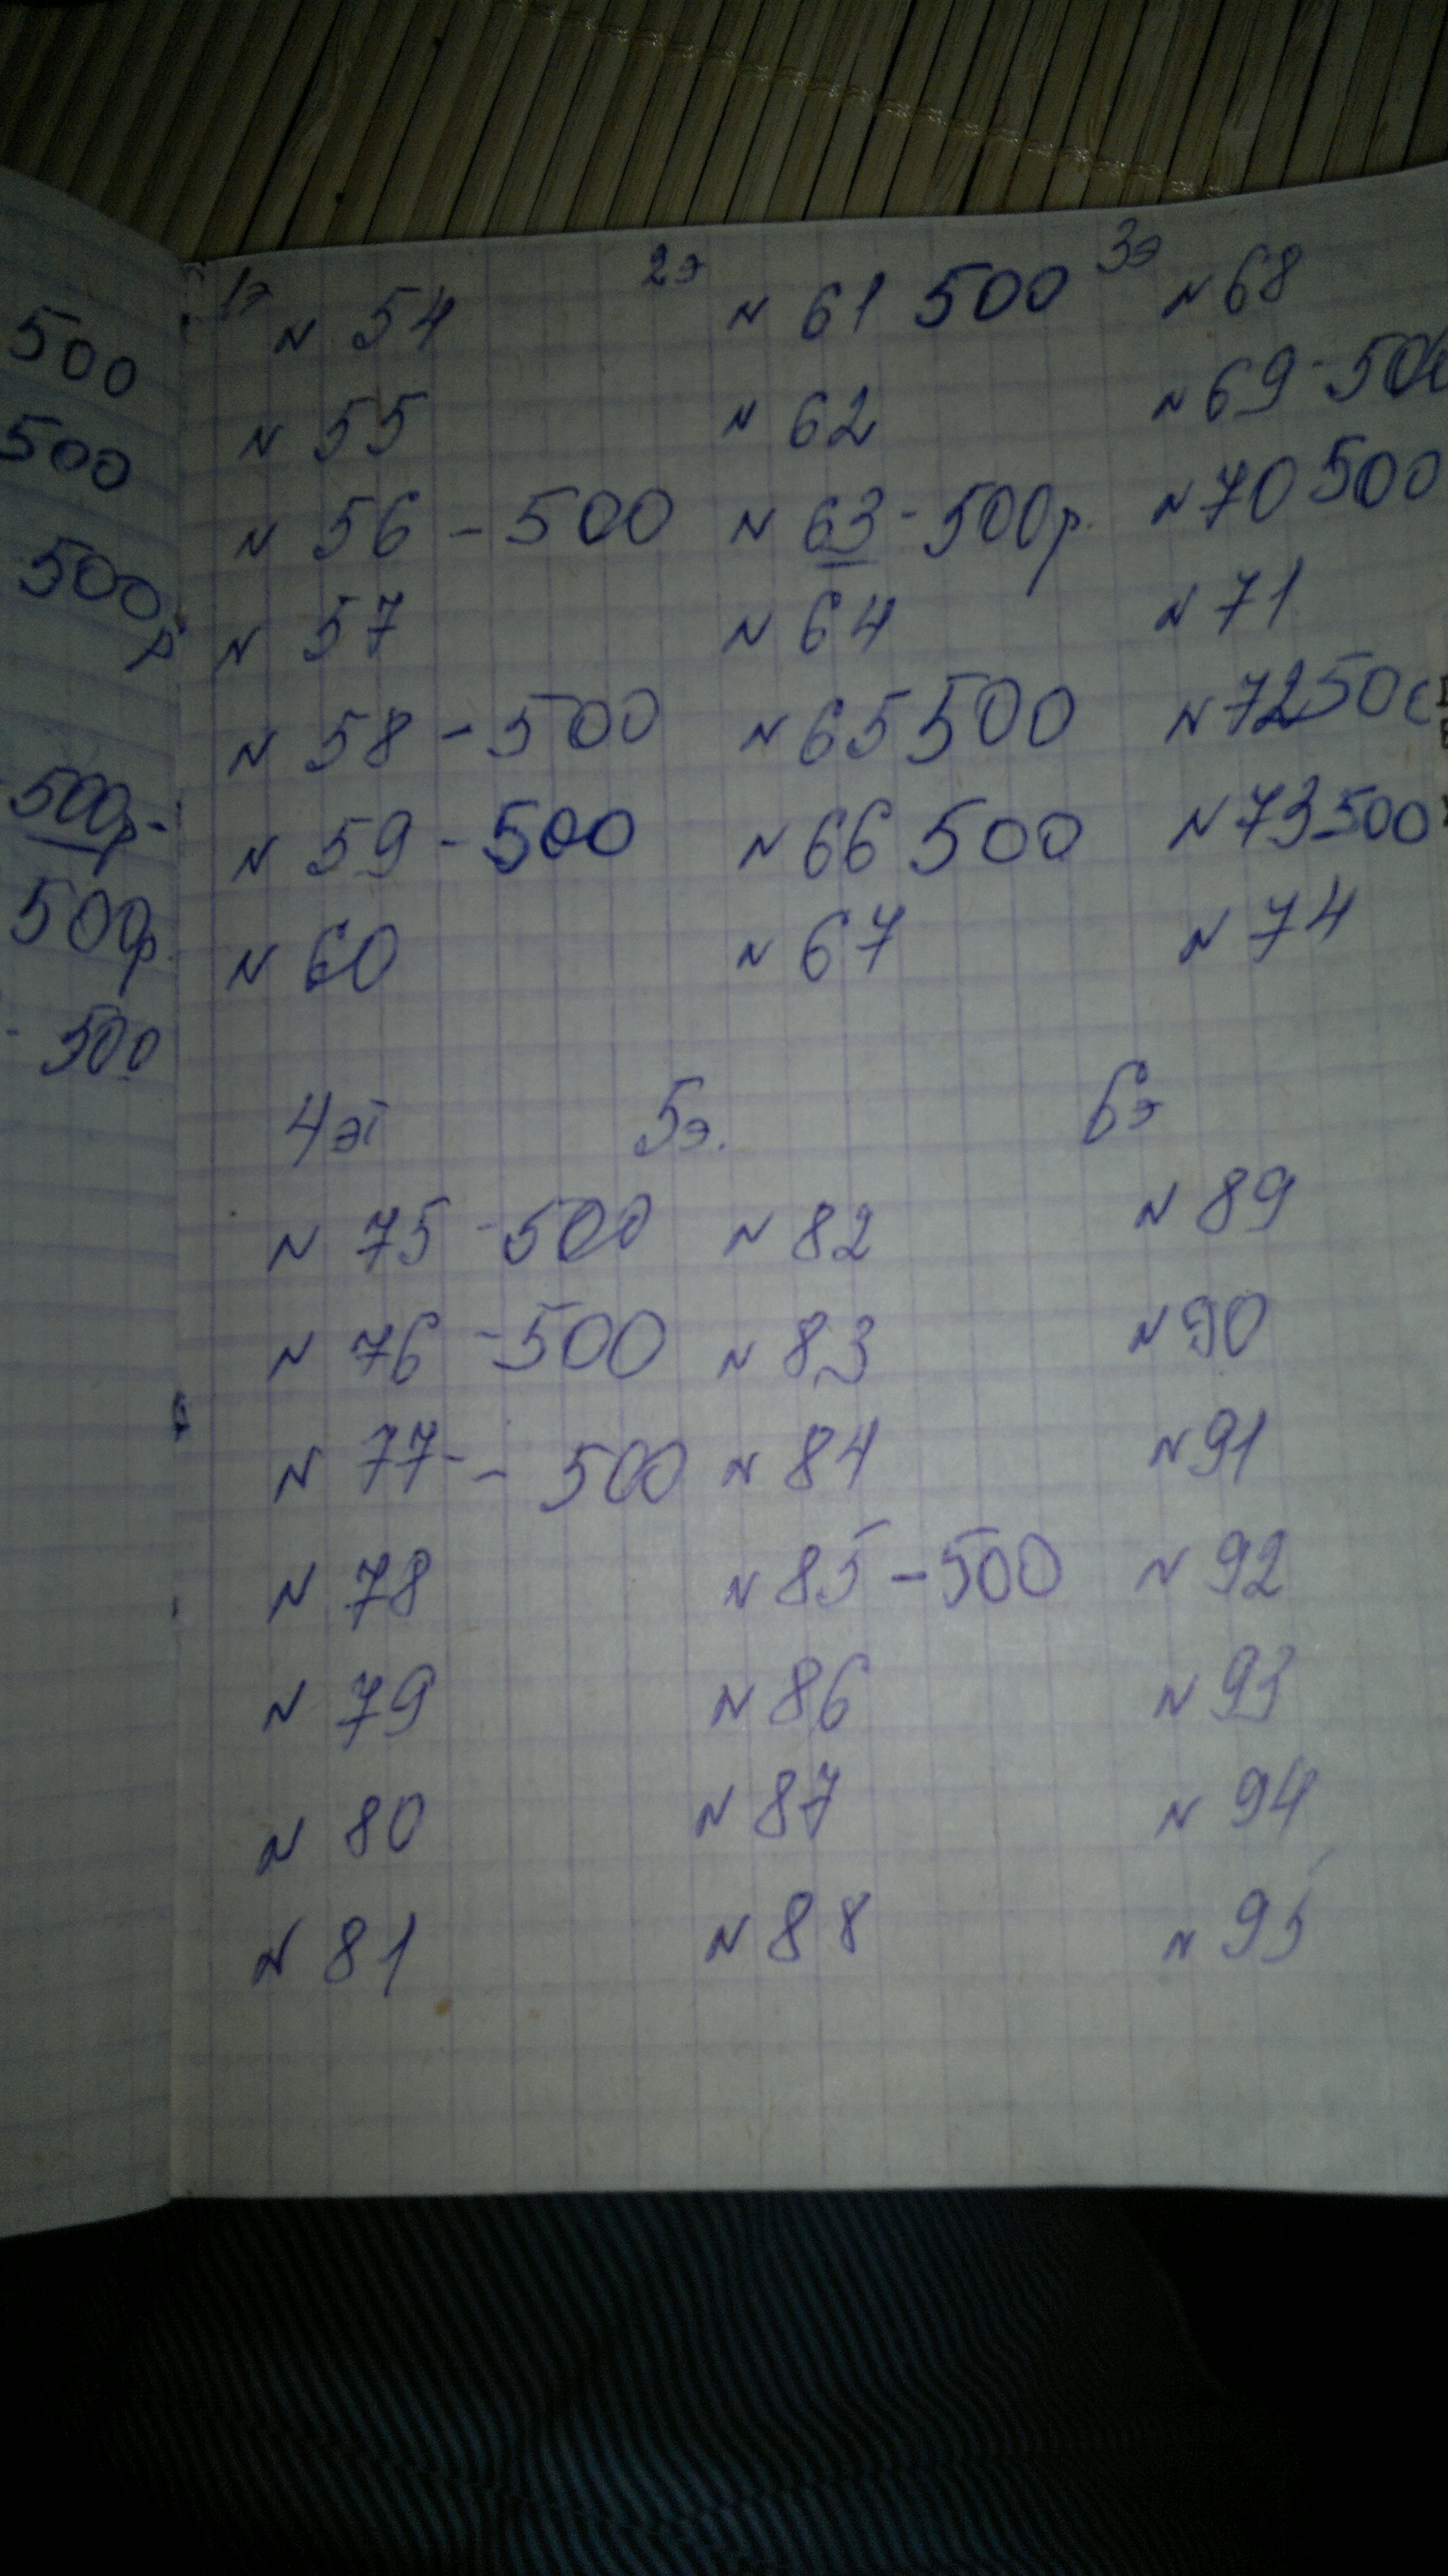 500
500
500р
500р-
500р.
- 500
1э 2э 3э
N 54 N 61 500 N 68
N 55 N 62 N 69-500
N 56 - 500 N 63 - 500р. N 70 500
N 57 N 64 N 71
N 58 - 500 N 65 500 N 72 500
N 59 - 500 N 66 500 N 73 500
N 60 N 67 N 74
4эт 5э. 6э
N 75 - 500 N 82 N 89
N 76 - 500 N 83 N 90
N 77 - - 500 N 84 N 91
N 78 N 85 - 500 N 92
N 79 N 86 N 93
N 80 N 87 N 94
N 81 N 88 N 95